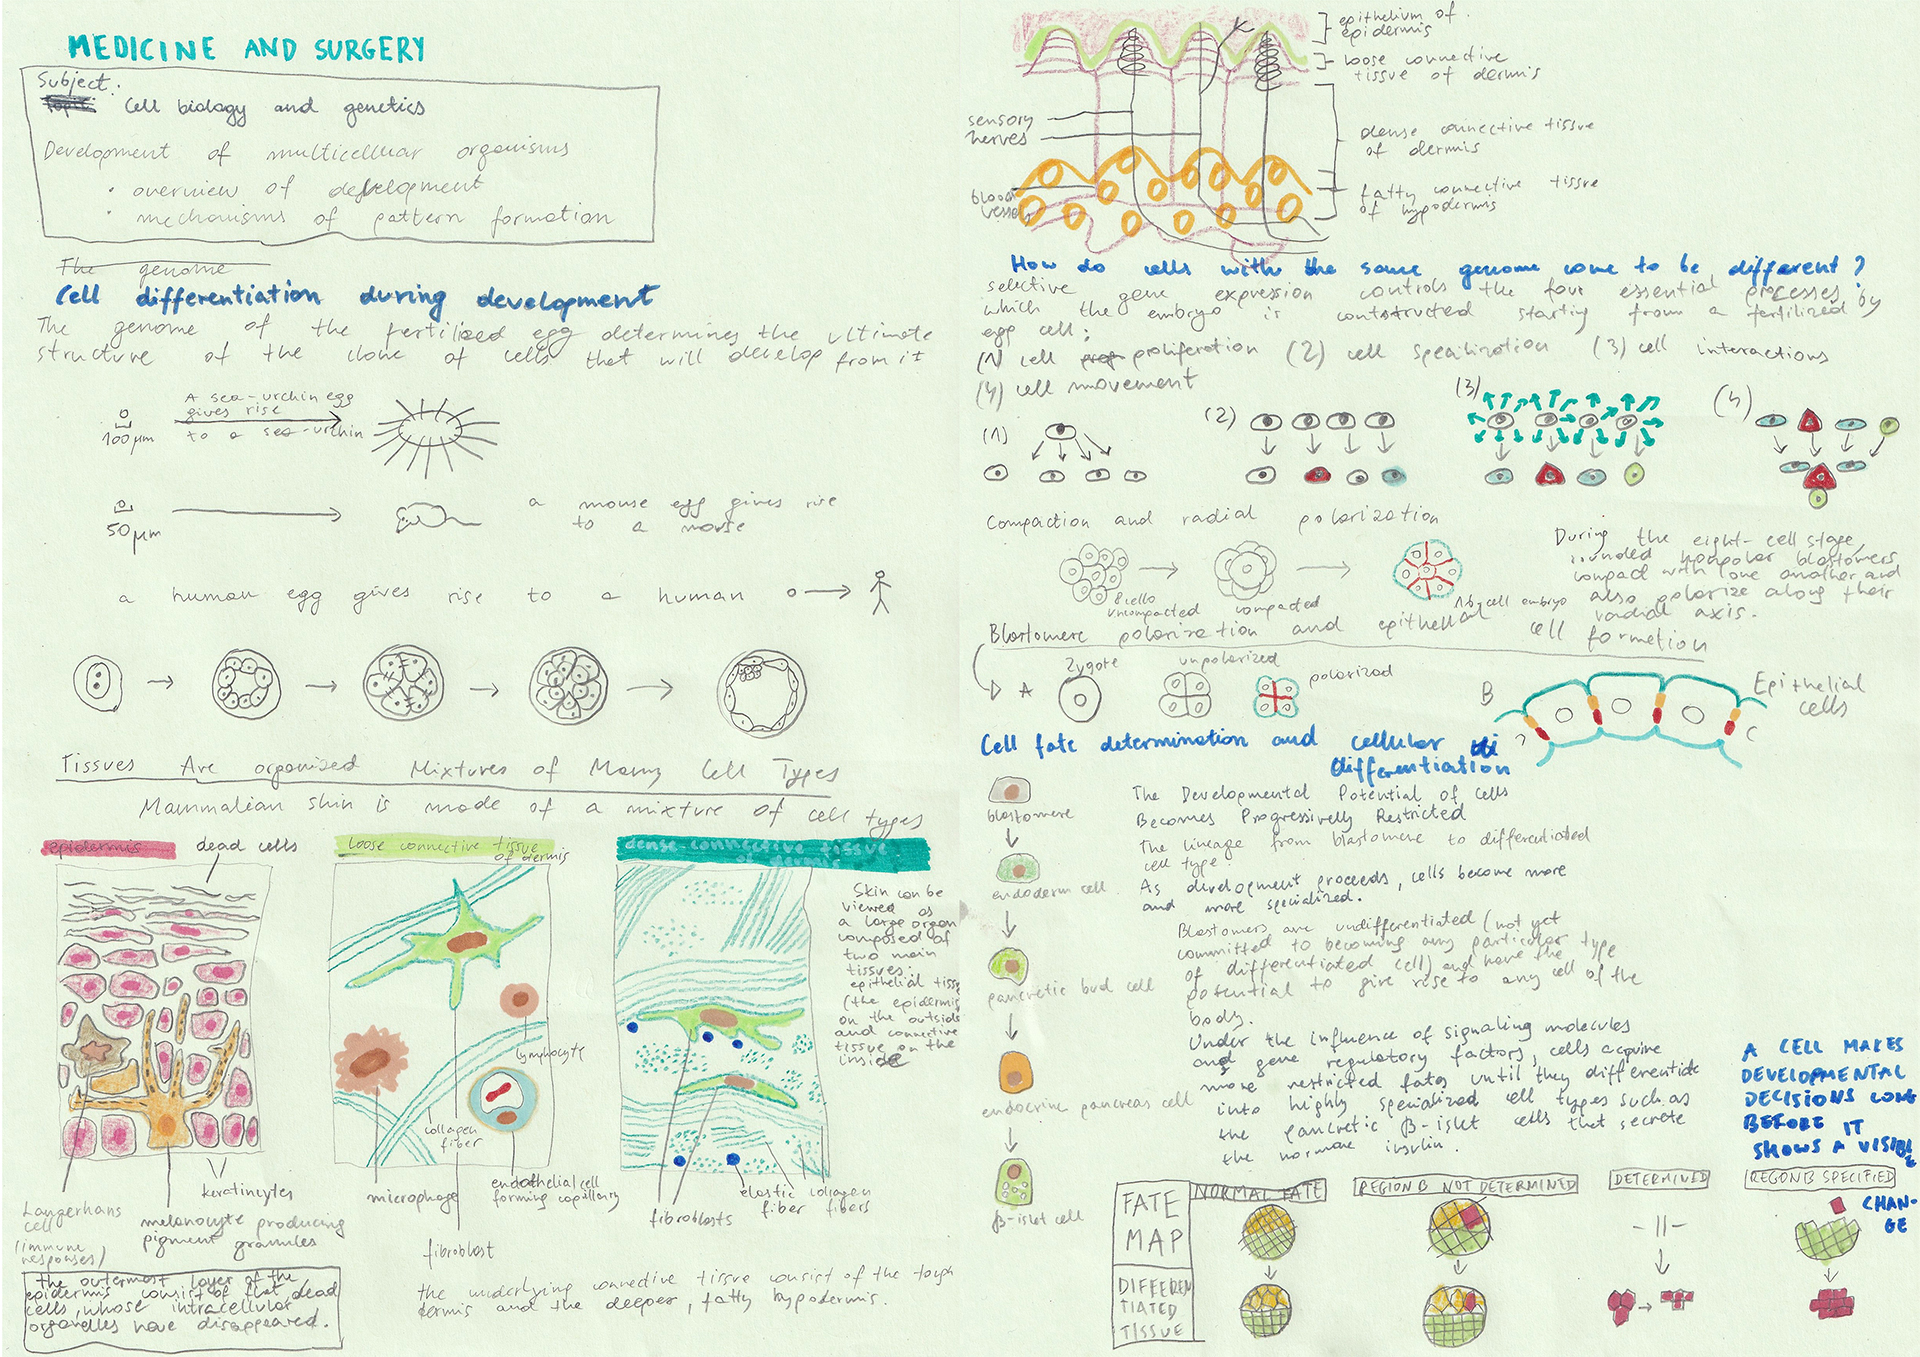 MEDICINE AND SURGERY
Subject:
Cell biology and genetics
Development of multicellular organisms
• overview of development
• mechanisms of pattern formation
The genome
Cell differentiation during development
The genome of the fertilized egg determines the ultimate
structure of the clone of cells that will develop from it
100 μm
A sea-urchin egg
gives rise
to a sea-urchin
50 μm
a mouse egg gives rise
to a mouse
a human egg gives rise to a human
Tissues Are organized Mixtures of Many Cell Types
Mammalian skin is made of a mixture of cell types
epidermis
dead cells
loose connective tissue
of dermis
dense connective tissue
of dermis
Skin can be
viewed as
a large organ
composed of
two main
tissues:
epithelial tissu
(the epidermis
on the outside
and connective
tissue on the
inside
lymphocyte
collagen
fiber
keratincytes
Langerhans
cell
(immune
responses)
melanocyte producing
pigment granules
microphage
endothelial cell
forming capillary
fibroblast
fibroblasts
elastic
fiber
collagen
fibers
the outermost layer of the
epidermis consist of flat dead
cells, whose intracellular
organelles have disappeared.
the underlying connective tissue consist of the tough
dermis and the deeper, fatty hypodermis.
epithelium of
epidermis
loose connective
tissue of dermis
sensory
nerves
dense connective tissue
of dermis
blood
vessels
fatty connective tissue
of hypodermis
How do cells with the same genome come to be different?
selective gene expression controls the four essential processes by
which the embryo is contstructed starting from a fertilized
egg cell:
(1) cell proliferation (2) cell speialization (3) cell interactions
(4) cell movement
(1)
(2)
(3)
(4)
Compaction and radial polarization
8 cells
uncompacted
compacted
16-cell embryo
During the eight-cell stage,
rounded nonpolar blastomers
compact with one another and
also polarize along their
radial axis.
Blastomere polarization and epithelial cell formation
A
Zygote
unpolarized
polarized
B
C
Epithelial
cells
Cell fate determination and cellular
differentiation
blastomere
endoderm cell
pancretic bud cell
endocrine pancreas cell
β-islet cell
The Developmental Potential of Cells
Becomes Progressively Restricted
The lineage from blastomere to differentiated
cell type.
As development proceeds, cells become more
and more specialized.
Blastomers are undifferentiated (not yet
committed to becoming any particular type
of differentiated cell) and have the
potential to give rise to any cell of the
body.
Under the influence of signaling molecules
and gene regulatory factors, cells acquire
more restricted fates until they differentiate
into highly specialized cell types such as
the pancretic β-islet cells that secrete
the hormone insulin.
A CELL MAKES
DEVELOPMENTAL
DECISIONS LONG
BEFORE IT
SHOWS A VISIBLE
CHAN-
GE
FATE
MAP
NORMAL FATE
REGION B NOT DETERMINED
DETERMINED
REGION B SPECIFIED
-||-
DIFFEREN
TIATED
TISSUE